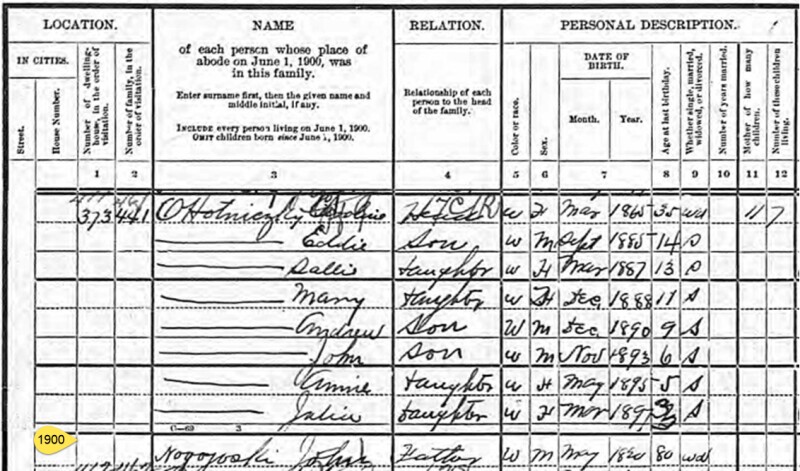 LOCATION. NAME RELATION. PERSONAL DESCRIPTION.
IN CITIES.
Street.
House Number.
Number of dwelling-house, in the order of visitation.
Number of family, in the order of visitation.
of each person whose place of abode on June 1, 1900, was in this family.
Enter surname first, then the given name and middle initial, if any.
INCLUDE every person living on June 1, 1900.
OMIT children born since June 1, 1900.
Relationship of each person to the head of the family.
Color or race.
Sex.
DATE OF BIRTH.
Month. Year.
Age at last birthday.
Whether single, married, widowed, or divorced.
Number of years married.
Mother of how many children.
Number of these children living.
1 2 3 4 5 6 7 8 9 10 11 12
373 441 OHotniczky W F Mar 1865 35 wd 11 7
Eddie Son W M Sept 1885 14 S
Sallie Daughter W F Mar 1887 13 S
Mary Daughter W F Dec 1888 11 S
Andrew Son W M Dec 1890 9 S
John Son W M Nov 1893 6 S
Annie Daughter W F May 1895 5 S
Julia Daughter W F Mar S
C-62 3
1900
John Father W M May 80 wd